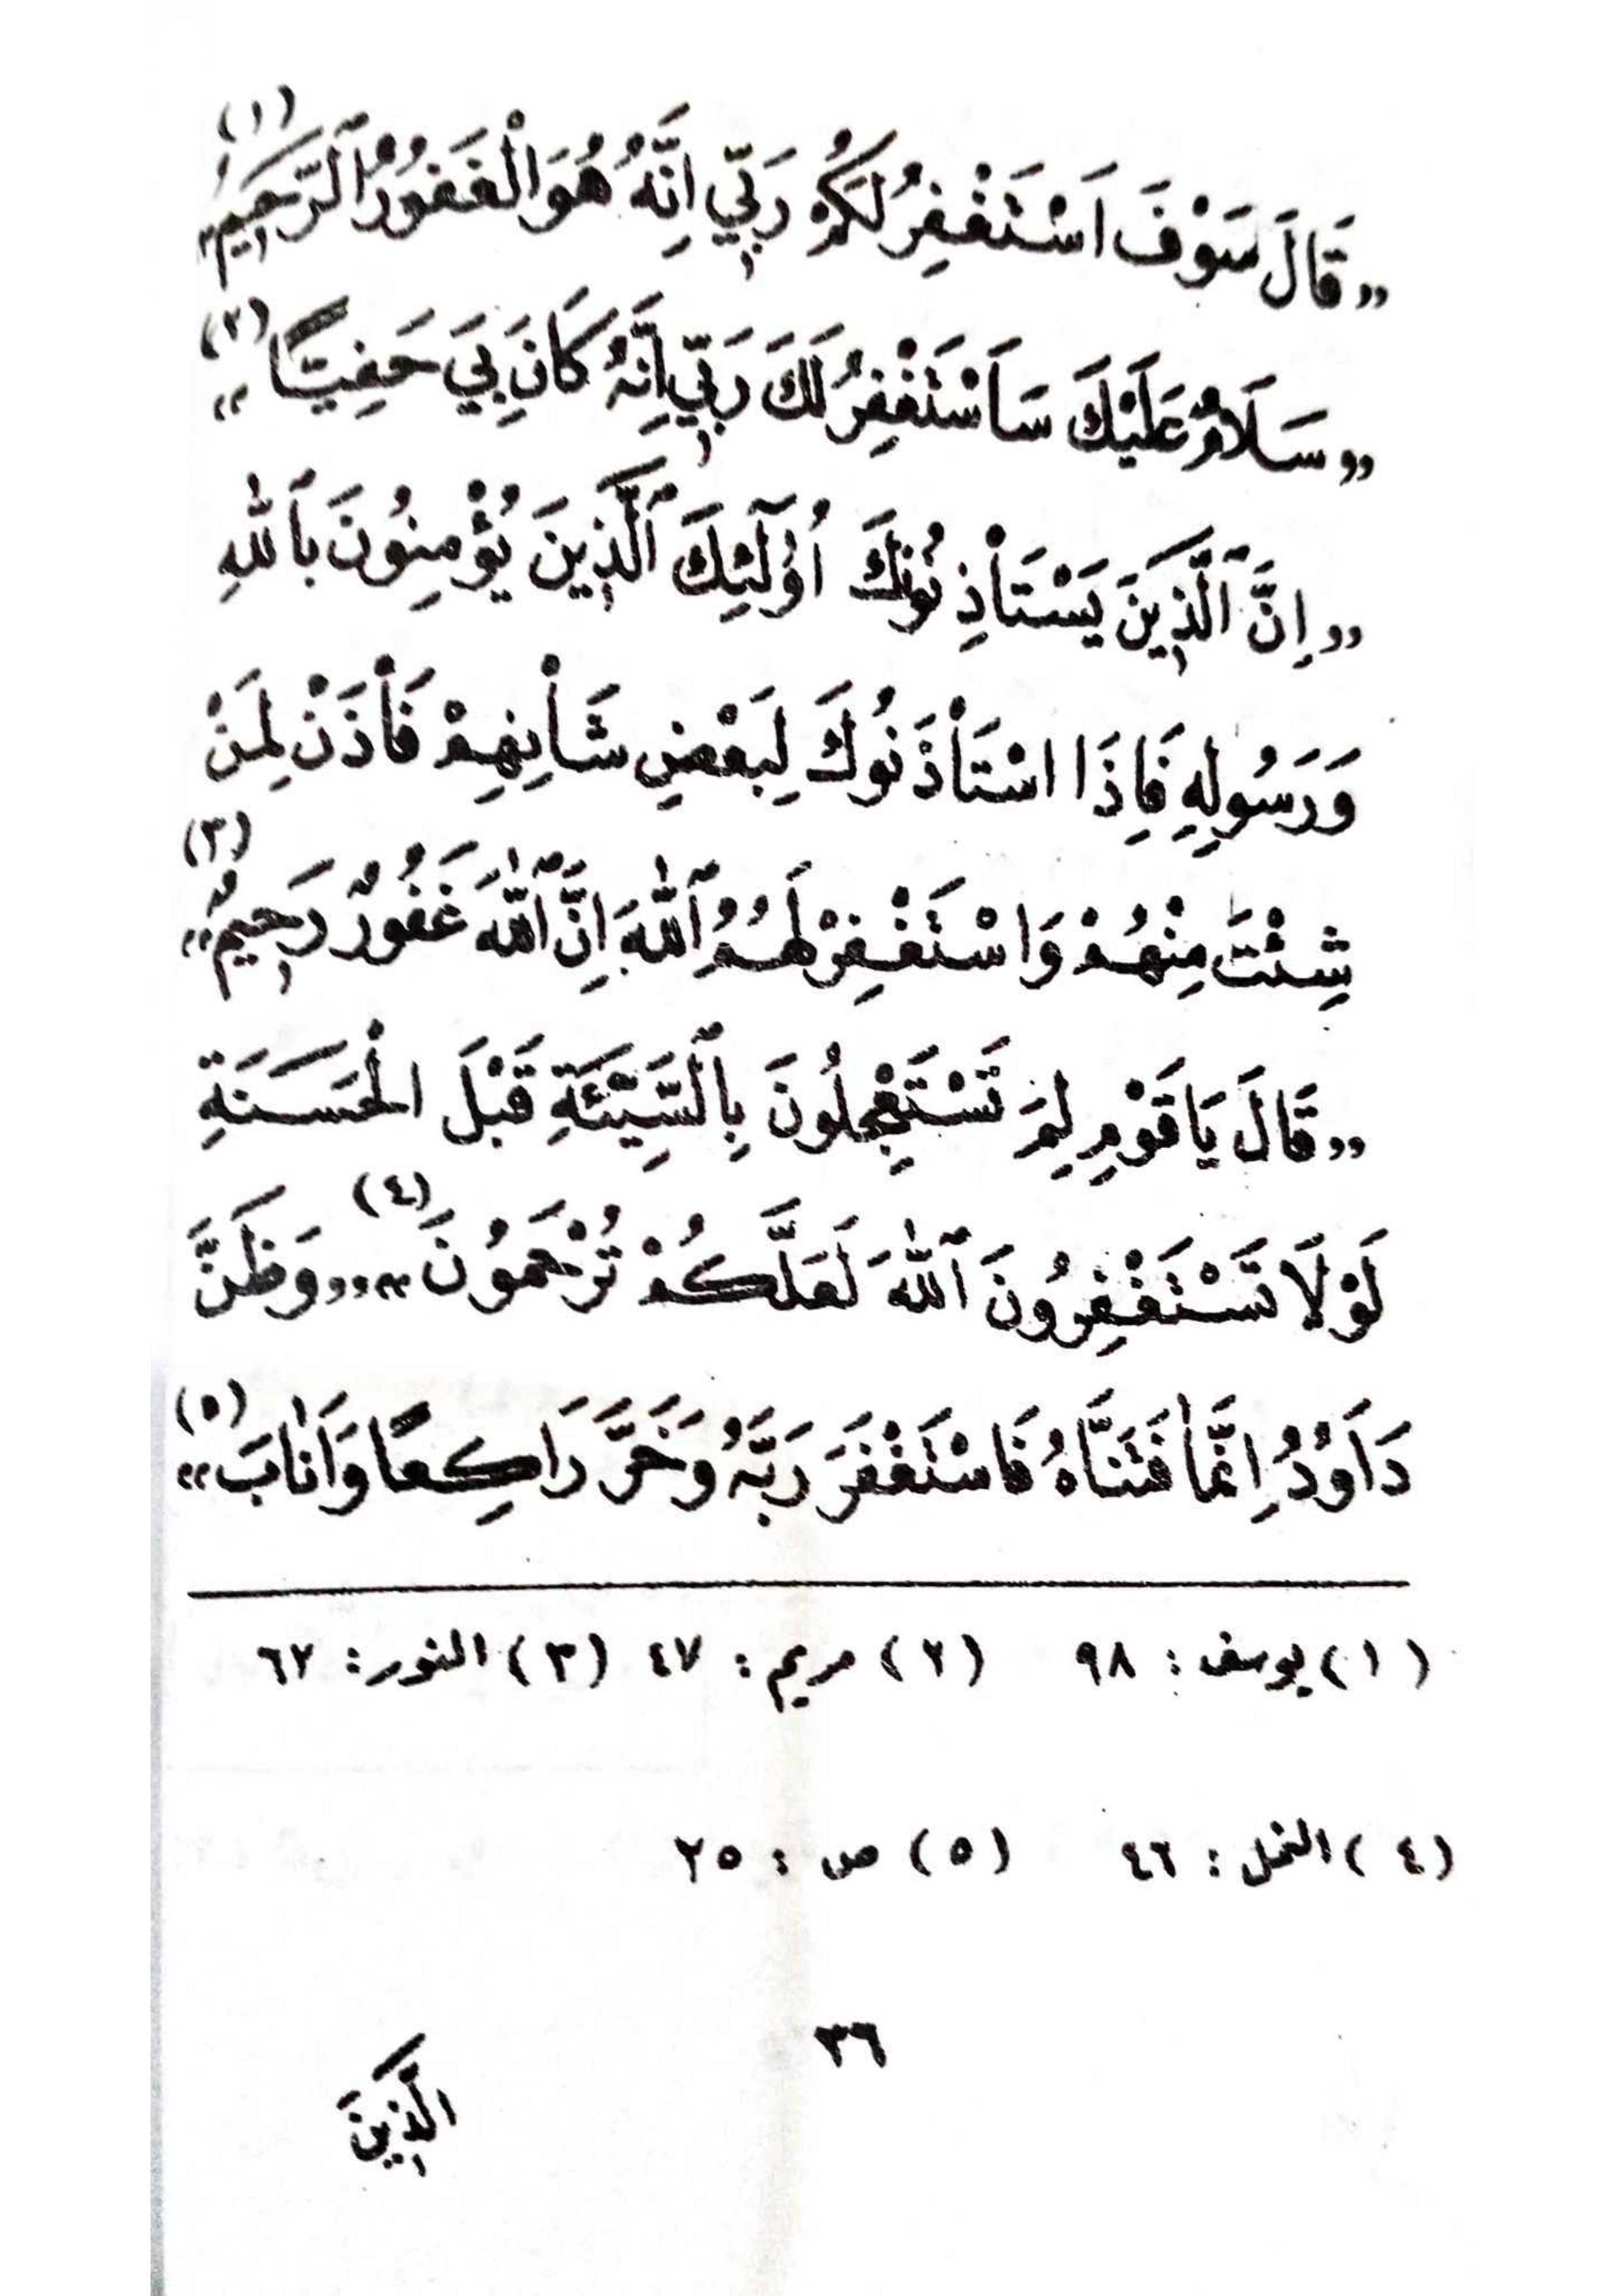 (١)
«قَالَ سَوْفَ اَسْتَغْفِرُ لَكُمْ رَبِّي اِنَّهُ هُوَ الْغَفُورُ الرَّحِيمُ»
«سَلَامٌ عَلَيْكَ سَاَسْتَغْفِرُ لَكَ رَبِّي اِنَّهُ كَانَ بِي حَفِيًّا» (٢)
«اِنَّ الَّذِينَ يَسْتَاْذِنُونَكَ اُولَٓئِكَ الَّذِينَ يُؤْمِنُونَ بِاللّٰهِ
وَرَسُولِهِ فَاِذَا اسْتَاْذَنُوكَ لِبَعْضِ شَاْنِهِمْ فَاْذَنْ لِمَنْ
(٣)
شِئْتَ مِنْهُمْ وَاسْتَغْفِرْ لَهُمُ اللّٰهَ اِنَّ اللّٰهَ غَفُورٌ رَحِيمٌ»
«قَالَ يَا قَوْمِ لِمَ تَسْتَعْجِلُونَ بِالسَّيِّئَةِ قَبْلَ الْحَسَنَةِ
لَوْلَا تَسْتَغْفِرُونَ اللّٰهَ لَعَلَّكُمْ تُرْحَمُونَ» (٤) «وَظَنَّ
دَاوُدُ اِنَّمَا فَتَنَّاهُ فَاسْتَغْفَرَ رَبَّهُ وَخَرَّ رَاكِعًا وَاَنَابَ» (٥)
(١) يوسف : ٩٨ (٢) مريم : ٤٧ (٣) النور : ٦٢
(٤) النمل : ٤٦ (٥) ص : ٢٥
٣٦
الَّذِينَ